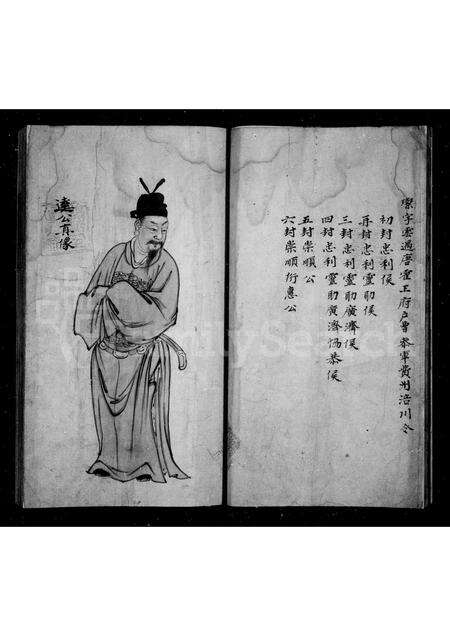 璨字王府戶曹參軍費州涪川令
初封忠利侯
再封忠利靈助侯
三封忠利靈助廣濟侯
四封忠利靈助廣濟協恭侯
五封崇順公
六封崇順衍惠公
達公肖像
FamilySearch